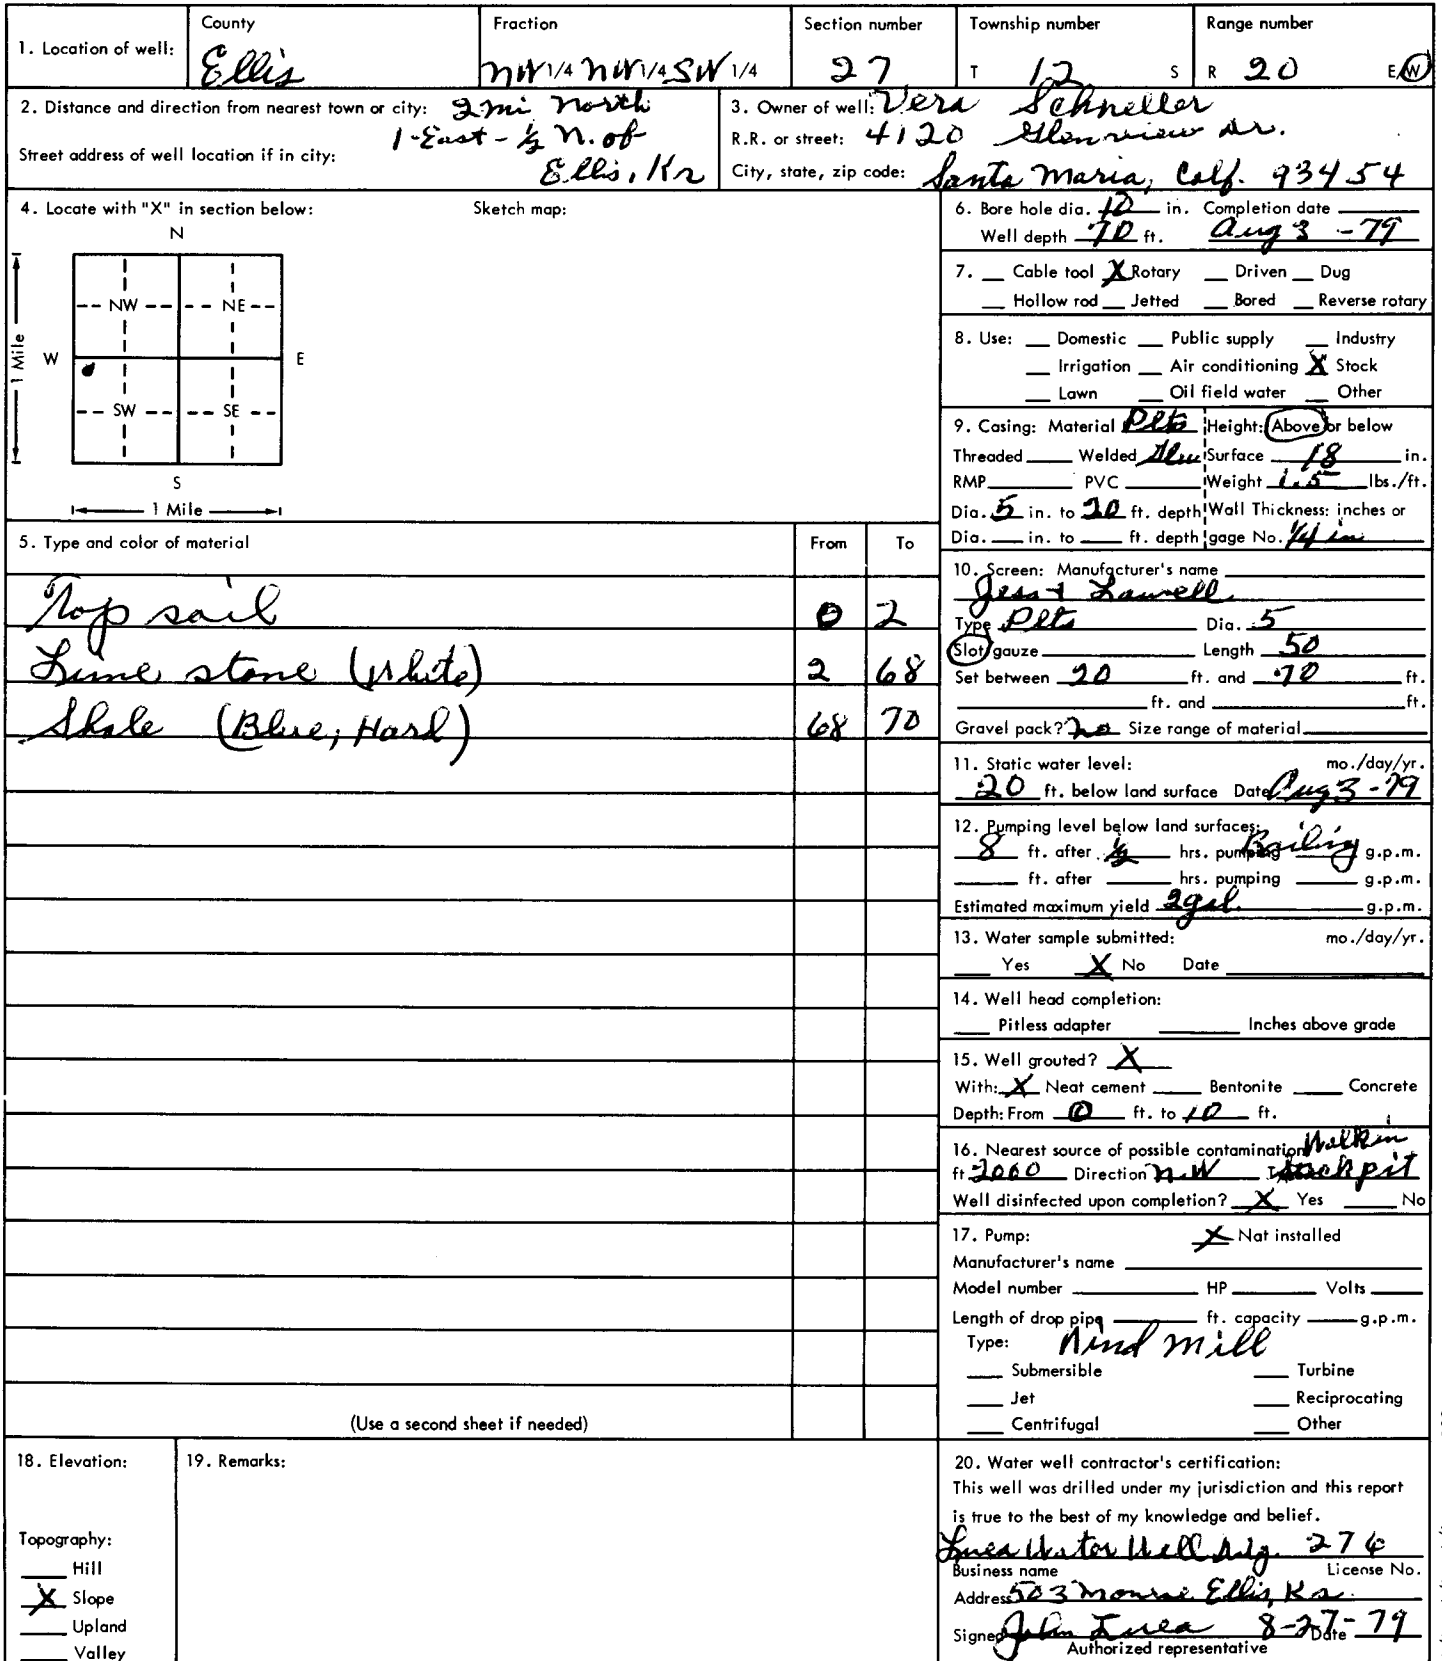 1. Location of well:
County
Ellis
Fraction
NW 1/4 NW 1/4 SW 1/4
Section number
27
Township number
T 12 S
Range number
R 20 E/W
2. Distance and direction from nearest town or city: 2 mi North
1-East - 1/2 N. of
Street address of well location if in city:
Ellis, Ks
3. Owner of well: Vera Schneller
R.R. or street: 4120 Glenview Dr.
City, state, zip code: Santa Maria, Calf. 93454
4. Locate with "X" in section below:
Sketch map:
N
NW NE
1 Mile
W E
SW SE
S
1 Mile
5. Type and color of material From To
Top soil 0 2
Lime stone (White) 2 68
Shale (Blue, Hard) 68 70
(Use a second sheet if needed)
6. Bore hole dia. 10 in. Completion date
Well depth 70 ft. Aug 3 - 79
7. Cable tool X Rotary Driven Dug
Hollow rod Jetted Bored Reverse rotary
8. Use: Domestic Public supply Industry
Irrigation Air conditioning X Stock
Lawn Oil field water Other
9. Casing: Material Plts Height: Above or below
Threaded Welded Glue Surface 18 in.
RMP PVC Weight 1.5 lbs./ft.
Dia. 5 in. to 20 ft. depth Wall Thickness: inches or
Dia. in. to ft. depth gage No. 1/4 in
10. Screen: Manufacturer's name
Jess + Lowell
Type Plts Dia. 5
Slot/gauze Length 50
Set between 20 ft. and 70 ft.
ft. and ft.
Gravel pack? no Size range of material
11. Static water level: mo./day/yr.
20 ft. below land surface Date Aug 3 - 79
12. Pumping level below land surfaces:
8 ft. after 1/2 hrs. pumping Bailing g.p.m.
ft. after hrs. pumping g.p.m.
Estimated maximum yield 2 gal. g.p.m.
13. Water sample submitted: mo./day/yr.
Yes X No Date
14. Well head completion:
Pitless adapter Inches above grade
15. Well grouted? X
With: X Neat cement Bentonite Concrete
Depth: From 0 ft. to 10 ft.
16. Nearest source of possible contamination:
ft 2000 Direction N.W
Well disinfected upon completion? X Yes No
17. Pump: X Not installed
Manufacturer's name
Model number HP Volts
Length of drop pipe ft. capacity g.p.m.
Type: Wind mill
Submersible Turbine
Jet Reciprocating
Centrifugal Other
18. Elevation:
Topography:
Hill
X Slope
Upland
Valley
19. Remarks:
20. Water well contractor's certification:
This well was drilled under my jurisdiction and this report
is true to the best of my knowledge and belief.
Water Well Drlg. 276
Business name License No.
Address 503 Monroe Ellis, Ks.
Signed John 8-27-79 Date
Authorized representative